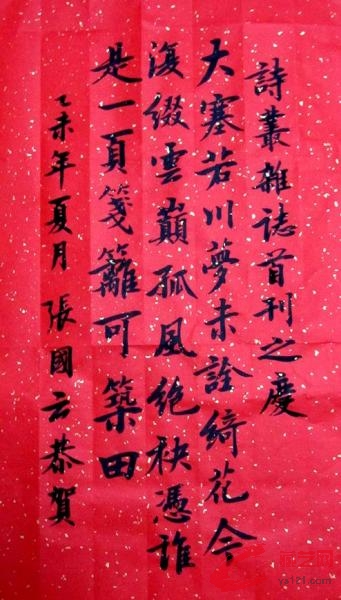 詩叢雜誌首刊之慶
大塞若川夢未詮綺花今
復綴雲巔孤風絶袂憑誰
是一頁箋籬可築田
乙未年夏月張國云恭賀